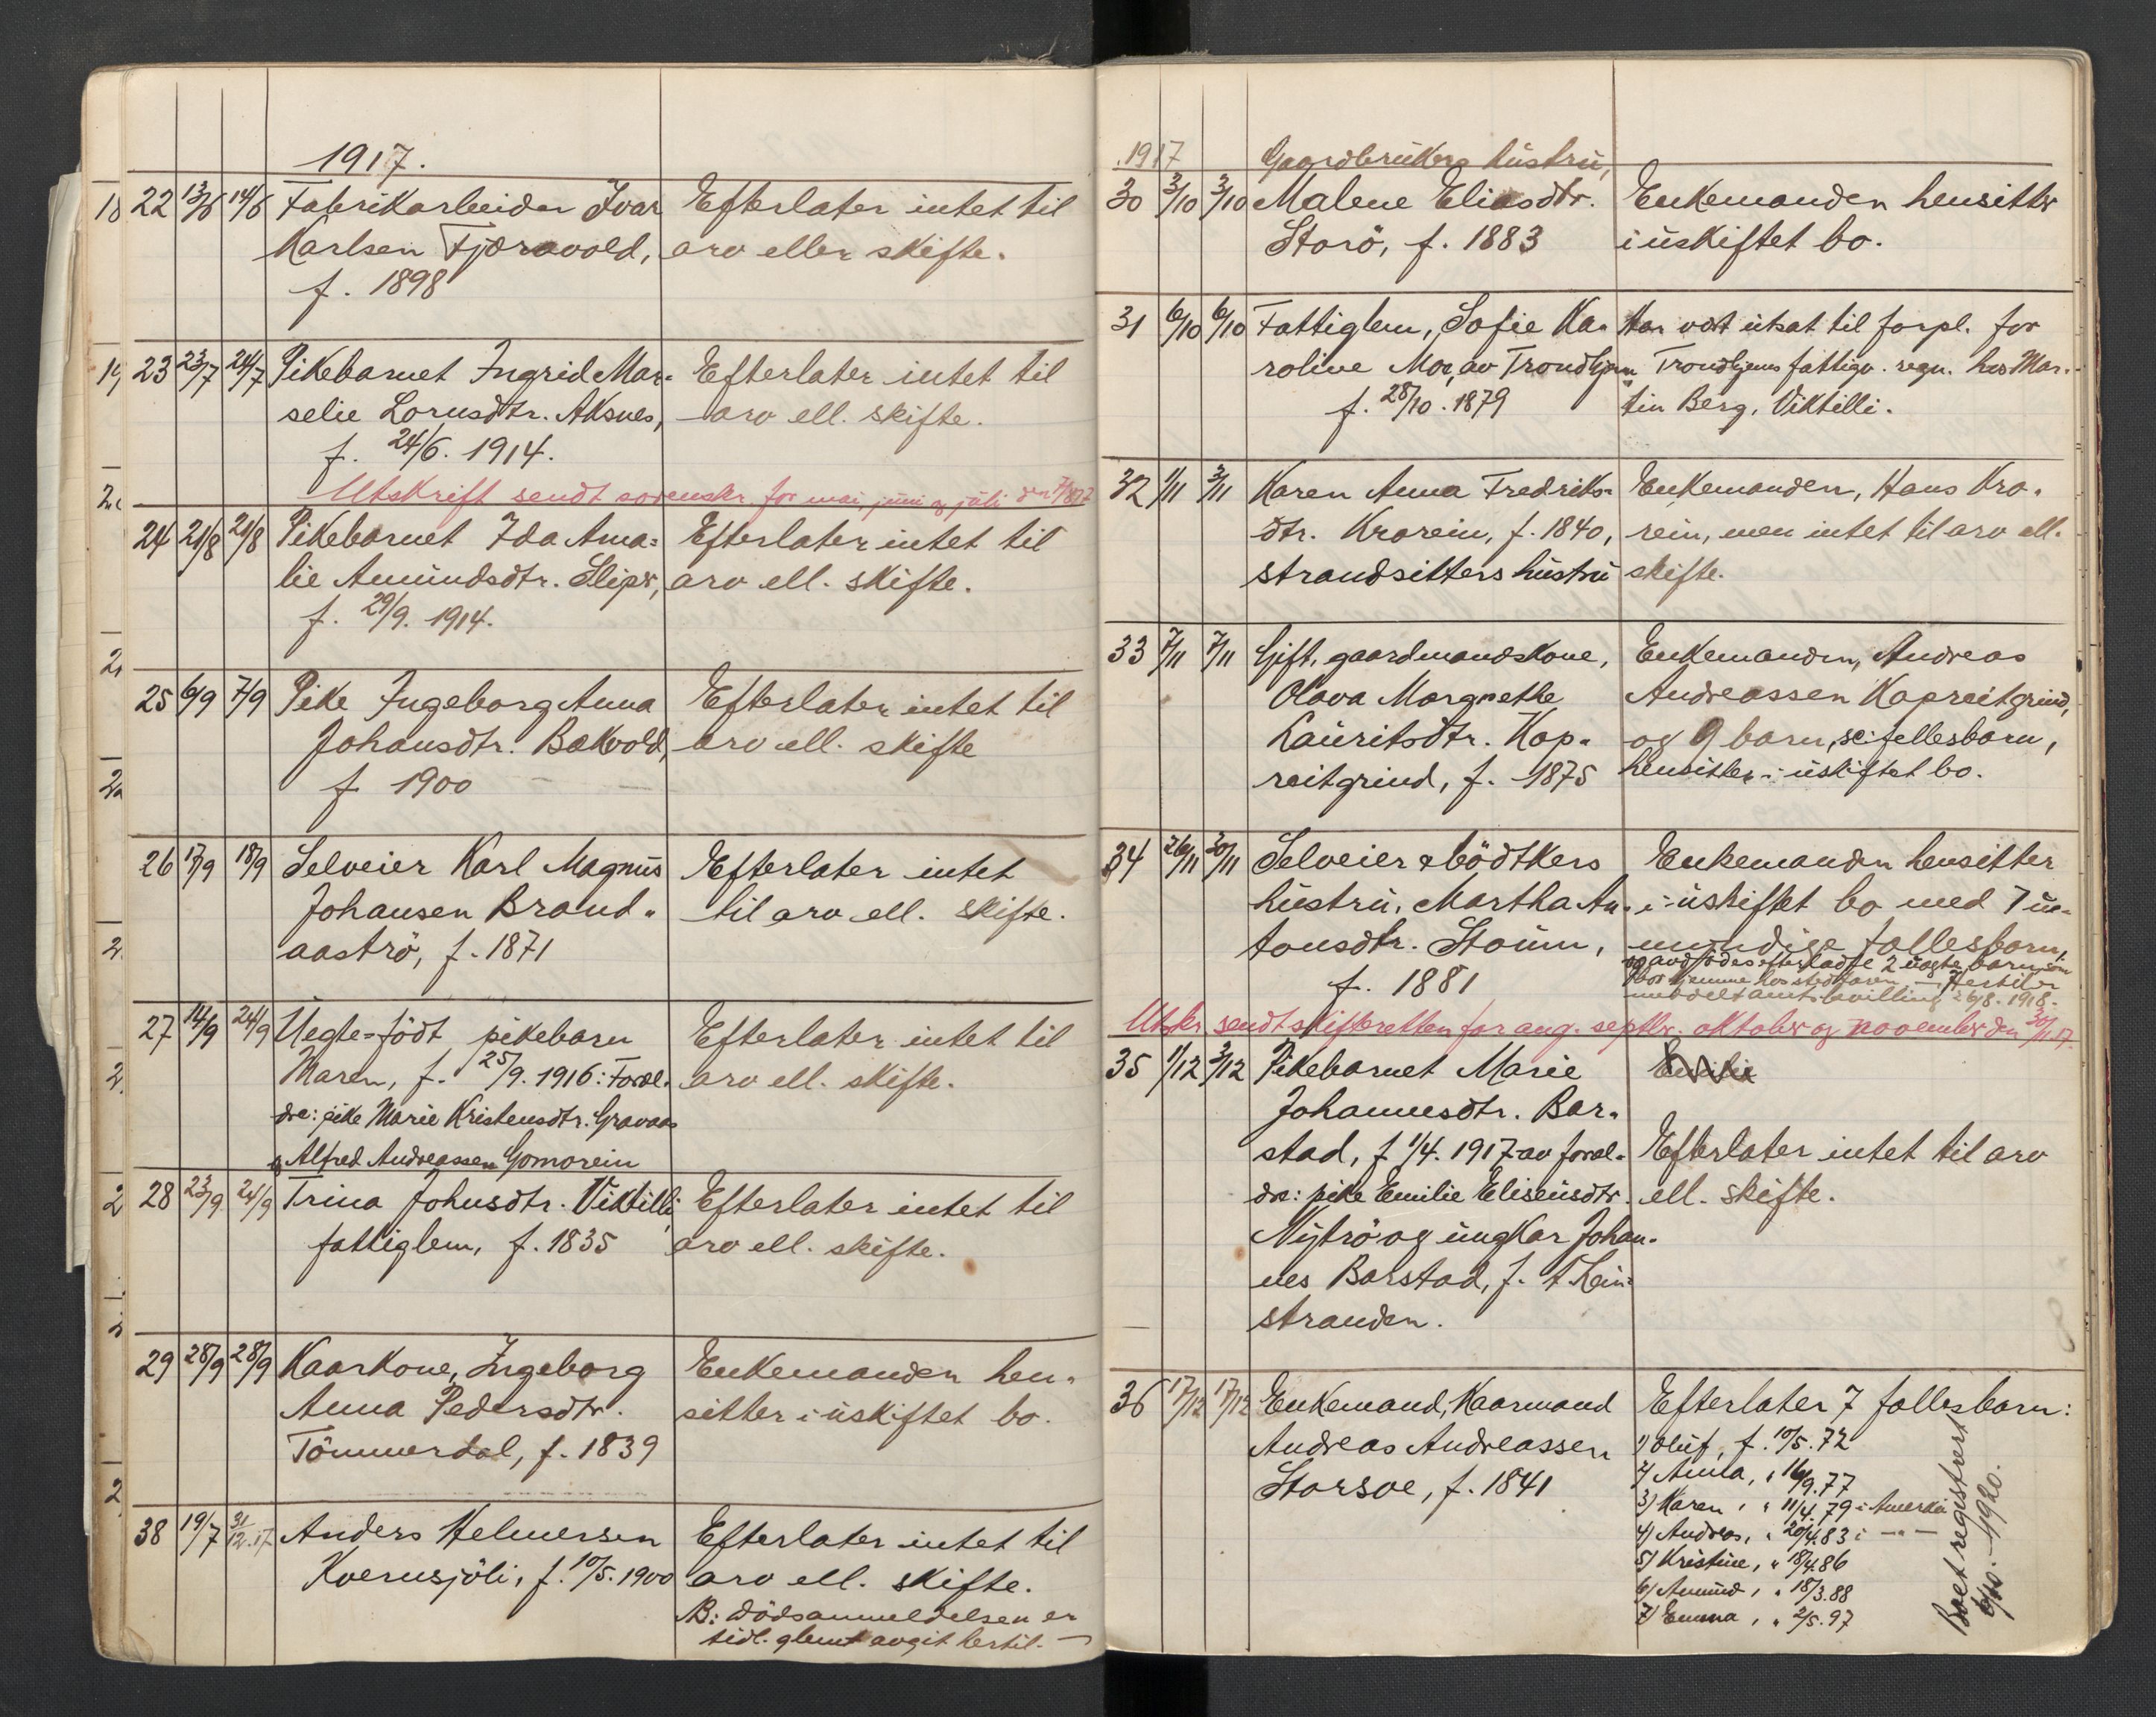 1917.
22 13/6 14/6 Fabrikarbeider Ivar Efterlater intet til
Karlsen Fjæravold, arv eller skifte.
f. 1898
23 23/7 24/7 Pikebarnet Ingrid Mar- Efterlater intet til
selie Lornsdtr. Aksnes, arv ell. skifte.
f. 24/6. 1914.
Utskrift sendt sorenskr. for mai, juni og juli den
24 21/8 21/8 Pikebarnet Ida Ama= Efterlater intet til
lie Amundsdtr. Sliper, arv ell. skifte.
f. 29/9. 1914.
25 6/9 7/9 Pike Ingeborg Anna Efterlater intet til
Johansdtr. Bakvold, arv ell. skifte
f 1900
26 17/9 18/9 Selveier Karl Magnus Efterlater intet
Johansen Brand- til arv ell. skifte.
aaströ, f. 1871
27 14/9 24/9 Uegte=födt pikebarn Efterlater intet til
Maren, f. 25/9. 1916: Foræl- arv ell. skifte.
dre: pike Marie Kristensdtr. Gravaas
og Alfred Andreassen Gomorein
28 23/9 24/9 Trina Johnsdtr. Viktilli, Efterlater intet til
fattiglem, f. 1835 arv ell. skifte.
29 28/9 28/9 Kaarkone, Ingeborg Enkemanden hen-
Anna Pedersdtr. sitter i uskiftet bo.
Tömmerdal, f. 1839
38 19/7 31/12.17 Anders Helmersen Efterlater intet til
Kvernsjöli, f. 10/5. 1900 arv ell. skifte.
NB: Dödsanmeldelsen er
tidl. glemt avgit hertil. —
1917 Gaardbrukers hustru,
30 3/10 3/10 Malene Eliasdtr. Enkemanden hensitter
Storö, f. 1883 i uskiftet bo.
31 6/10 6/10 Fattiglem, Sofie Ka- har vært utsat til forpl. for
roline Moe, av Trondhjem Trondhjems fattigv. regn. hos Mar-
f. 28/10. 1879 tin Berg, Viktilli.
32 1/11 3/11 Karen Anna Fredriks- Enkemanden, Hans Kro-
dtr. Krorein, f. 1840, rein, men intet til arv ell.
strandsitters hustru skifte.
33 7/11 7/11 Gift, gaardmandskone, Enkemanden, Andreas
Olava Margrethe Andreassen Kapreitgrind,
Lauritsdtr. Kap- og 9 barn, fellesbarn,
reitgrind, f. 1875 hensitter i uskiftet bo.
34 26/11 30/11 Selveier & bödtkers Enkemanden hensitter
hustru, Martha An- i uskiftet bo med 7 u-
tonsdtr. Stoum, myndige fællesbarn,
f. 1881 og avdödes efterladte 2 uegte barn som
bor hjemme hos stedfaren — Hertil er
meddelt amtsbevilling 26/8. 1918.
Utskr. sendt skifteretten for aug. septbr. oktober og november den 30/11 17.
35 1/12 3/12 Pikebarnet Marie
Johannesdtr. Bar-
stad, f 1/4. 1917 av foræl- Efterlater intet til arv
dre: pike Emilie Eliseusdtr. ell. skifte.
Nytrö og ungkar Johan-
nes Barstad, f. t. Lein-
stranden.
36 17/12 17/12 Enkemand, Kaarmand Efterlater 7 fællesbarn:
Andreas Andreassen 1) Oluf, f. 10/5. 72
Storsoe, f. 1841 2) Anna, " 16/9. 77
3) Karen, " 11/4. 79 i Amerika
4) Andreas, " 20/4. 83 i — " —
5) Kristine, " 18/4. 86
6) Amund, " 18/3. 88
7) Emma, " 2/5. 97
Boet registrert
6/10. 1920.